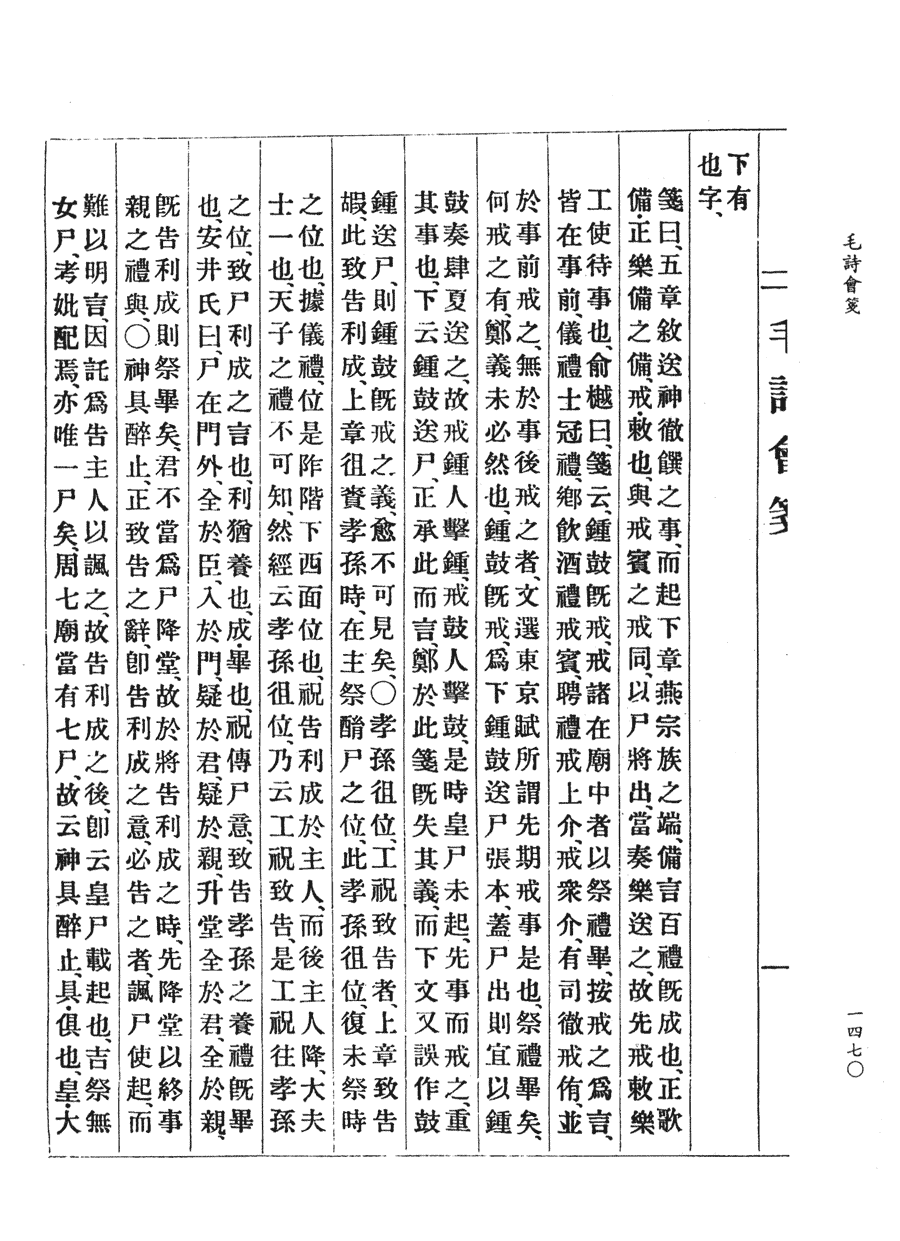 毛詩會箋
一四七〇
毛詩會箋
一
下有
也字、
箋曰、五章敘送神徹饌之事、而起下章燕宗族之端、備言百禮既成也、正歌
備・正樂備之備、戒・敕也、與戒賓之戒同、以尸將出、當奏樂送之、故先戒敕樂
工使待事也、俞樾曰、箋云、鍾鼓既戒、戒諸在廟中者以祭禮畢、按戒之爲言、
皆在事前、儀禮士冠禮、鄉飲酒禮戒賓、聘禮戒上介、戒衆介、有司徹戒侑、並
於事前戒之、無於事後戒之者、文選東京賦所謂先期戒事是也、祭禮畢矣、
何戒之有、鄭義未必然也、鍾鼓既戒、爲下鍾鼓送尸張本、蓋尸出則宜以鍾
鼓奏肆夏送之、故戒鍾人擊鍾、戒鼓人擊鼓、是時皇尸未起、先事而戒之、重
其事也、下云鍾鼓送尸、正承此而言、鄭於此箋既失其義、而下文又誤作鼓
鍾送尸、則鍾鼓既戒之義、愈不可見矣、〇孝孫徂位、工祝致告者、上章致告
嘏、此致告利成、上章徂賚孝孫時、在主祭酳尸之位、此孝孫徂位、復未祭時
之位也、據儀禮、位是阼階下西面位也、祝告利成於主人、而後主人降、大夫
士一也、天子之禮不可知、然經云孝孫徂位、乃云工祝致告、是工祝往孝孫
之位、致尸利成之言也、利猶養也、成・畢也、祝傳尸意、致告孝孫之養禮既畢
也、安井氏曰、尸在門外、全於臣、入於門、疑於君、疑於親、升堂全於君、全於親、
既告利成則祭畢矣、君不當爲尸降堂、故於將告利成之時、先降堂以終事
親之禮與、〇神具醉止、正致告之辭、卽告利成之意、必告之者、諷尸使起、而
難以明言、因託爲告主人以諷之、故告利成之後、卽云皇尸載起也、吉祭無
女尸、考妣配焉、亦唯一尸矣、周七廟當有七尸、故云神具醉止、具・俱也、皇・大